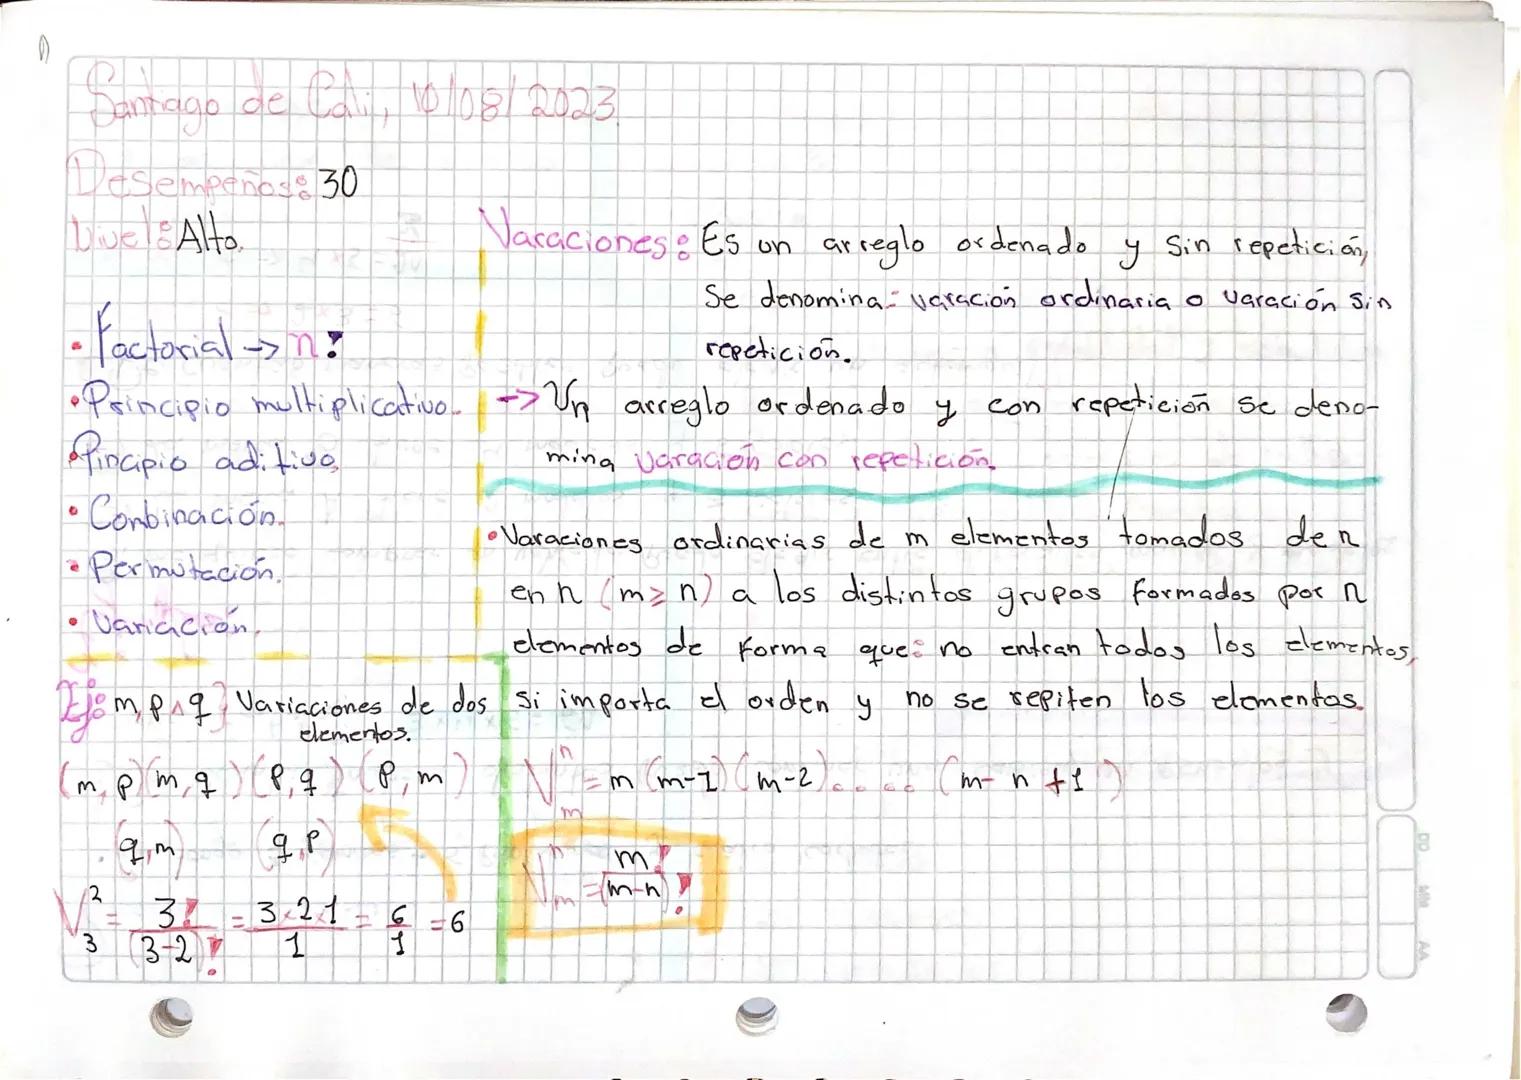 Santiago de Cali, 10/08/2023
Desempeños: 30
Nivel: Alto.
• Factorial → n!
• Principio multiplicativo.
• Pincipio aditivo.
• Conbinación.
• Permutación.
• Variación.
Varaciones: Es un arreglo ordenado y sin repetición,
Se denomina: varación ordinaria o varación sin
repetición.
→ Un arreglo ordenado y con repetición se deno-
mina varación con repetición.
• Varaciones ordinarias de m elementos tomados de n
en n (m ≥ n) a los distintos grupos formados por n
elementos de forma que: no entran todos los elementos,
si importa el orden y no se repiten los elementos.
V_m^n = m (m-1) (m-2)...... (m- n +1)
V_m^n = m! / (m-n)!
Ej: m, p ∧ q } Variaciones de dos
elementos.
(m, p) (m, q) (p, q) (p, m)
(q, m) (q, p)
V_3^2 = 3! / (3-2)! = 3·2·1 / 1 = 6 / 1 = 6
DD MM AA